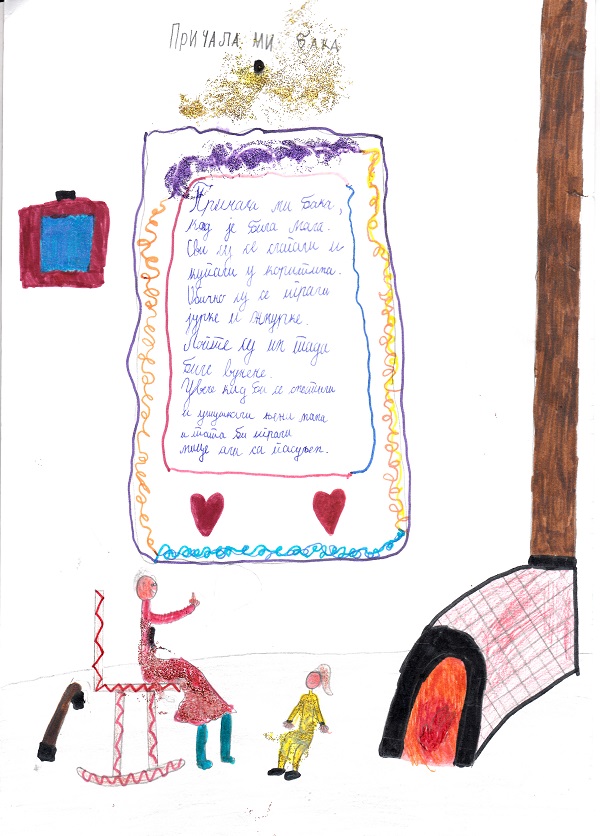 ПРИЧАЛА МИ БАКА
Причала ми бака,
кад је била мала.
Сви су се слагали и
купали у коритима.
Обично су се играли
јурке и жмурке.
Лопте су им тада
биле вунене.
Увече кад би се
и ушушкали њена мама
и тата би играли
мице али са пасуљем.